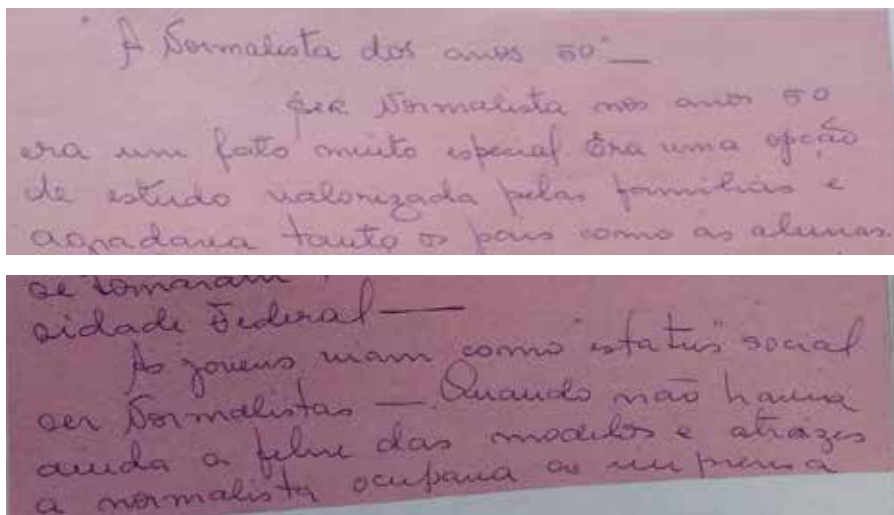 "A Normalista dos anos 50" —
Ser Normalista nos anos 50
era um fato muito especial. Era uma opção
de estudo valorizada pelas famílias e
agradava tanto os pais como as alunas.
se tornaram
sidade Federal —
As jovens viam como "status" social
ser Normalistas — Quando não havia
ainda a febre das modelos e atrizes
a normalista ocupava a imprensa